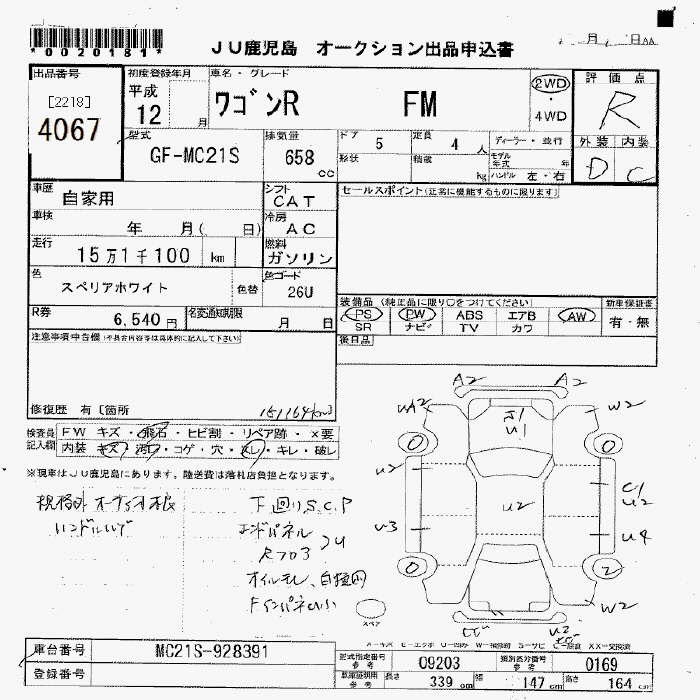 *0020181*
JU鹿児島 オークション出品申込書
月 日AA
出品番号
[2218]
4067
初度登録年月
平成
12 月
車名・グレード
ワゴンR FM
2WD
・
4WD
評価点
R
型式
GF-MC21S
排気量
658
cc
ドア 5
形状
定員 4 人
積載 kg
ディーラー・並行
モデル年式 年
ハンドル 左・右
外装 内装
D C
車歴
自家用
シフト
CAT
セールスポイント(正常に機能するものに限ります)
車検
年 月( 日)
冷房
AC
走行
15万1千100 km
燃料
ガソリン
色
スペリアホワイト
色替
色コード
26U
装備品(純正品に限り○をつけてください)
新車保証書
PS PW ABS エアB AW
有・無
SR ナビ TV カワ
R券
6,540 円
名変通知期限
月 日
後日品
注意事項申告欄(不具合内容等は具体的に記入して下さい)
修復歴 有[箇所
151164km]
検査員
記入欄
FW キズ・飛石・ヒビ割・リペア跡・×要
内装 キズ・汚れ・コゲ・穴・スレ・キレ・破レ
※現車はJU鹿児島にあります。陸送費は落札店負担となります。
規格外オーディオ
下回りS.C.P
エンドパネル
オイルモレ
A2 A2
UA2 W2
U1
0 0
U2
U2
C1
U2
U3
U4
0 2
W2
スペア
車台番号
MC21S-928391
登録番号
型式指定番号
参考
09203
類別区分番号
参考
0169
車庫証明用
参考
長さ 339 cm
幅 147 cm
高さ 164 cm